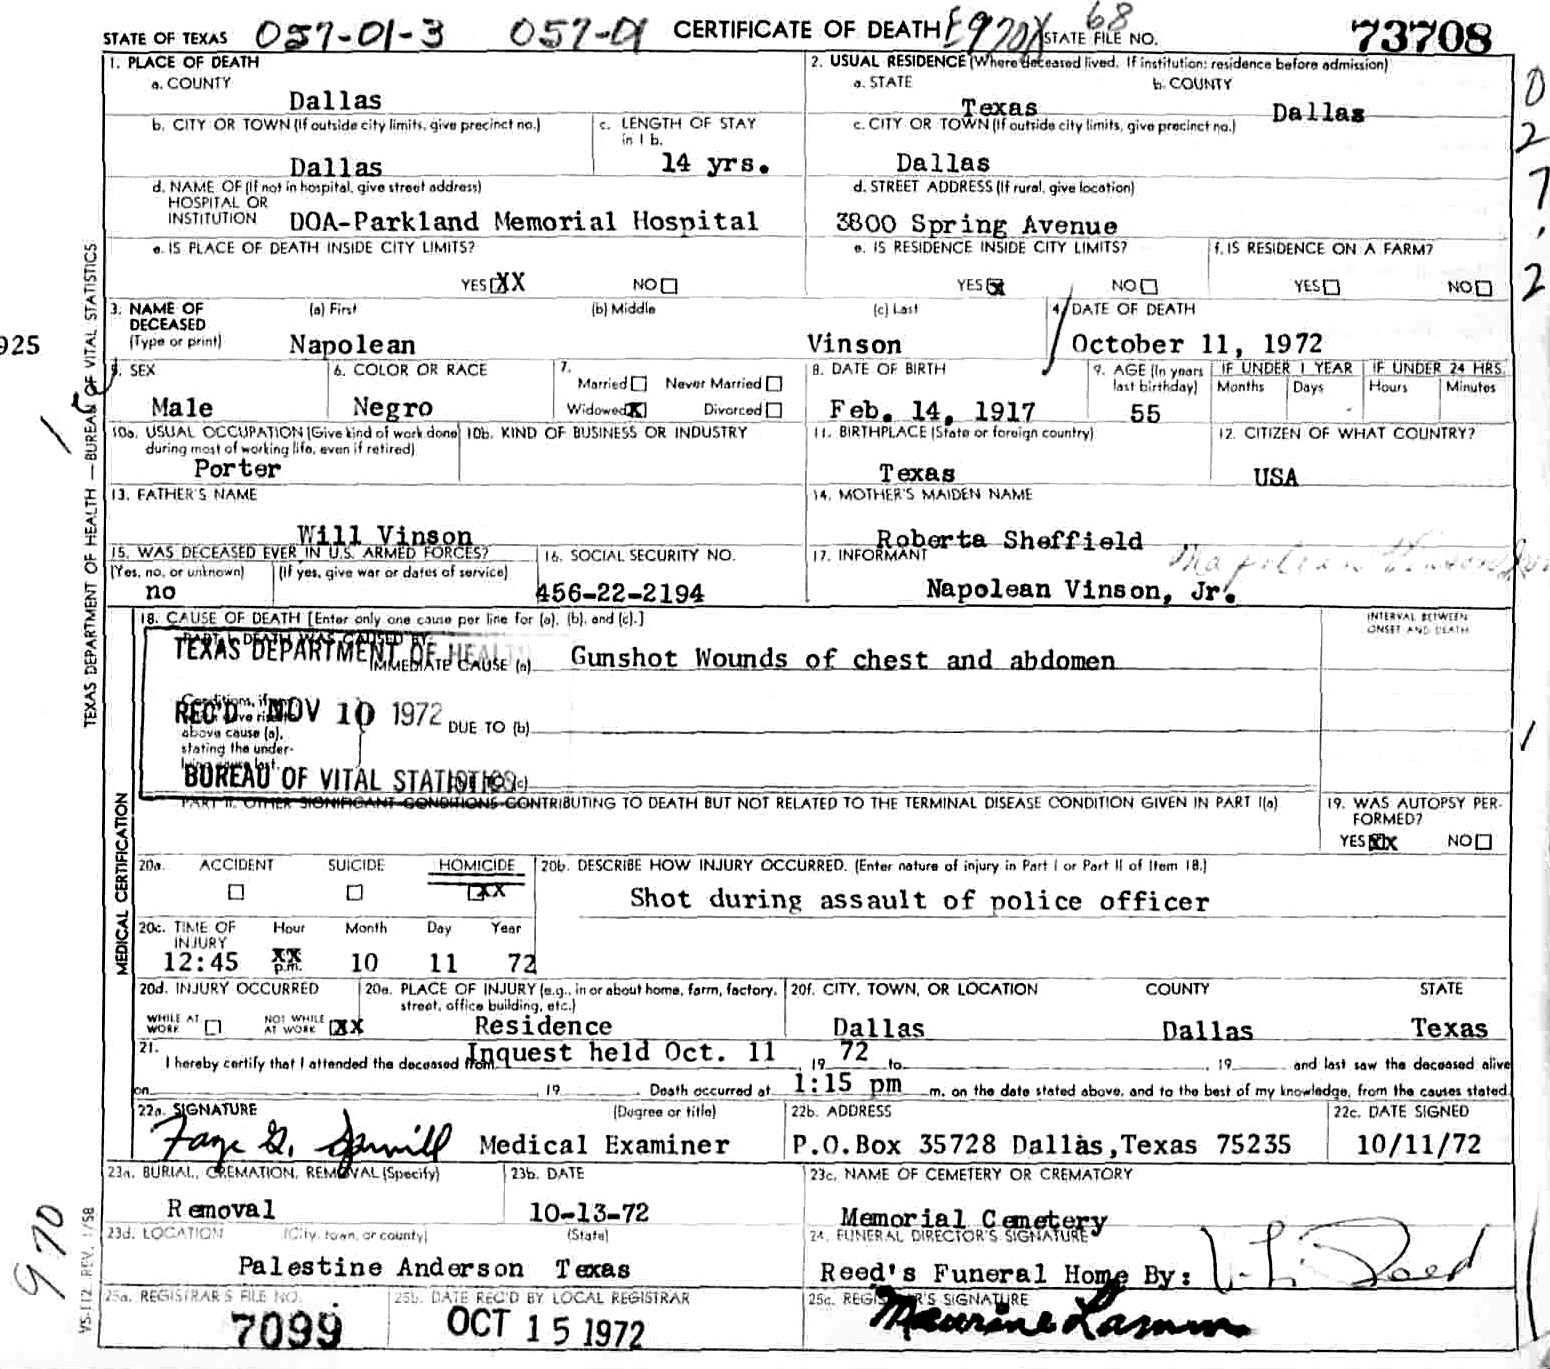 STATE OF TEXAS 057-01-3 057-01 CERTIFICATE OF DEATH E970X 68 STATE FILE NO. 73708
1. PLACE OF DEATH
a. COUNTY
Dallas
2. USUAL RESIDENCE (Where deceased lived. If institution: residence before admission)
a. STATE b. COUNTY
Texas Dallas
b. CITY OR TOWN (If outside city limits, give precinct no.)
Dallas
c. LENGTH OF STAY in 1 b.
14 yrs.
c. CITY OR TOWN (If outside city limits, give precinct no.)
Dallas
d. NAME OF (If not in hospital, give street address)
HOSPITAL OR
INSTITUTION DOA-Parkland Memorial Hospital
d. STREET ADDRESS (If rural, give location)
3800 Spring Avenue
e. IS PLACE OF DEATH INSIDE CITY LIMITS?
YES XX NO
e. IS RESIDENCE INSIDE CITY LIMITS?
YES X NO
f. IS RESIDENCE ON A FARM?
YES NO
0
2
7
2
1
925
970
TEXAS DEPARTMENT OF HEALTH — BUREAU OF VITAL STATISTICS
3. NAME OF DECEASED (Type or print)
(a) First (b) Middle (c) Last
Napolean Vinson
4. DATE OF DEATH
October 11, 1972
5. SEX
Male
6. COLOR OR RACE
Negro
7.
Married Never Married
Widowed X Divorced
8. DATE OF BIRTH
Feb. 14, 1917
9. AGE (In years last birthday)
55
IF UNDER 1 YEAR
Months Days
IF UNDER 24 HRS.
Hours Minutes
10a. USUAL OCCUPATION (Give kind of work done during most of working life, even if retired)
Porter
10b. KIND OF BUSINESS OR INDUSTRY
11. BIRTHPLACE (State or foreign country)
Texas
12. CITIZEN OF WHAT COUNTRY?
USA
13. FATHER'S NAME
Will Vinson
14. MOTHER'S MAIDEN NAME
Roberta Sheffield
15. WAS DECEASED EVER IN U.S. ARMED FORCES?
(Yes, no, or unknown) (If yes, give war or dates of service)
no
16. SOCIAL SECURITY NO.
456-22-2194
17. INFORMANT
Napolean Vinson Jr
Napolean Vinson, Jr.
MEDICAL CERTIFICATION
18. CAUSE OF DEATH [Enter only one cause per line for (a), (b), and (c).]
INTERVAL BETWEEN ONSET AND DEATH
PART I. DEATH WAS CAUSED BY:
IMMEDIATE CAUSE (a) Gunshot Wounds of chest and abdomen
TEXAS DEPARTMENT OF HEALTH
REC'D NOV 10 1972
BUREAU OF VITAL STATISTICS
Conditions, if any,
above cause (a),
stating the under-
lying cause last.
DUE TO (b)
(c)
PART II. OTHER SIGNIFICANT CONDITIONS CONTRIBUTING TO DEATH BUT NOT RELATED TO THE TERMINAL DISEASE CONDITION GIVEN IN PART I(a)
19. WAS AUTOPSY PERFORMED?
YES XX NO
20a. ACCIDENT SUICIDE HOMICIDE
XX
20b. DESCRIBE HOW INJURY OCCURRED. (Enter nature of injury in Part I or Part II of Item 18.)
Shot during assault of police officer
20c. TIME OF INJURY
Hour Month Day Year
12:45 XX p.m. 10 11 72
20d. INJURY OCCURRED
WHILE AT WORK NOT WHILE AT WORK XX
20e. PLACE OF INJURY (e.g., in or about home, farm, factory, street, office building, etc.)
Residence
20f. CITY, TOWN, OR LOCATION COUNTY STATE
Dallas Dallas Texas
21.
I hereby certify that I attended the deceased from Inquest held Oct. 11, 19 72 to , 19 and last saw the deceased alive
on , 19 . Death occurred at 1:15 pm m. on the date stated above, and to the best of my knowledge, from the causes stated.
22a. SIGNATURE (Degree or title)
Medical Examiner
22b. ADDRESS
P.O.Box 35728 Dallas, Texas 75235
22c. DATE SIGNED
10/11/72
23a. BURIAL, CREMATION, REMOVAL (Specify)
Removal
23b. DATE
10-13-72
23c. NAME OF CEMETERY OR CREMATORY
Memorial Cemetery
23d. LOCATION (City, town, or county) (State)
Palestine Anderson Texas
24. FUNERAL DIRECTOR'S SIGNATURE
Reed's Funeral Home By:
25a. REGISTRAR'S FILE NO.
7099
25b. DATE REC'D BY LOCAL REGISTRAR
OCT 15 1972
25c. REGISTRAR'S SIGNATURE
VS-112 REV. 1/58